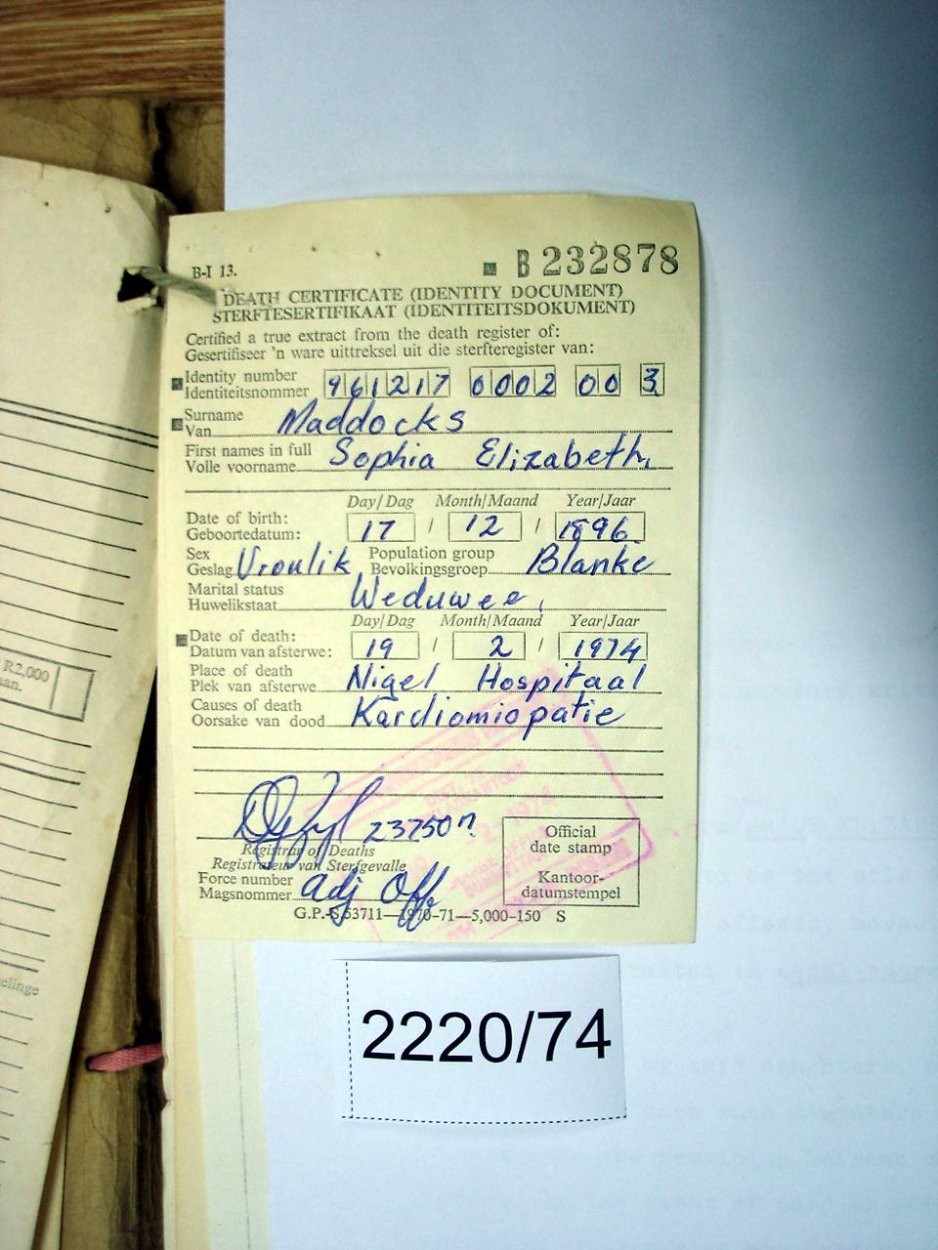 B-I 13.
B 232878
DEATH CERTIFICATE (IDENTITY DOCUMENT)
STERFTESERTIFIKAAT (IDENTITEITSDOKUMENT)
Certified a true extract from the death register of:
Gesertifiseer 'n ware uittreksel uit die sterfteregister van:
Identity number
Identiteitsnommer 961217 0002 00 3
Surname
Van Maddocks
First names in full
Volle voorname Sophia Elizabeth,
Day/Dag Month/Maand Year/Jaar
Date of birth:
Geboortedatum: 17 / 12 / 1896
Sex Population group
Geslag Vroulik Bevolkingsgroep Blanke
Marital status
Huwelikstaat Weduwee,
Day/Dag Month/Maand Year/Jaar
Date of death:
Datum van afsterwe: 19 / 2 / 1974
Place of death
Plek van afsterwe Nigel Hospitaal
Causes of death
Oorsake van dood Kardiomiopatie
23750
Registrar of Deaths
Registrateur van Sterfgevalle
Force number
Magsnommer adj Off
Official
date stamp
Kantoor-
datumstempel
G.P.-S.53711—1970-71—5,000-150 S
2220/74
R2,000
aan.